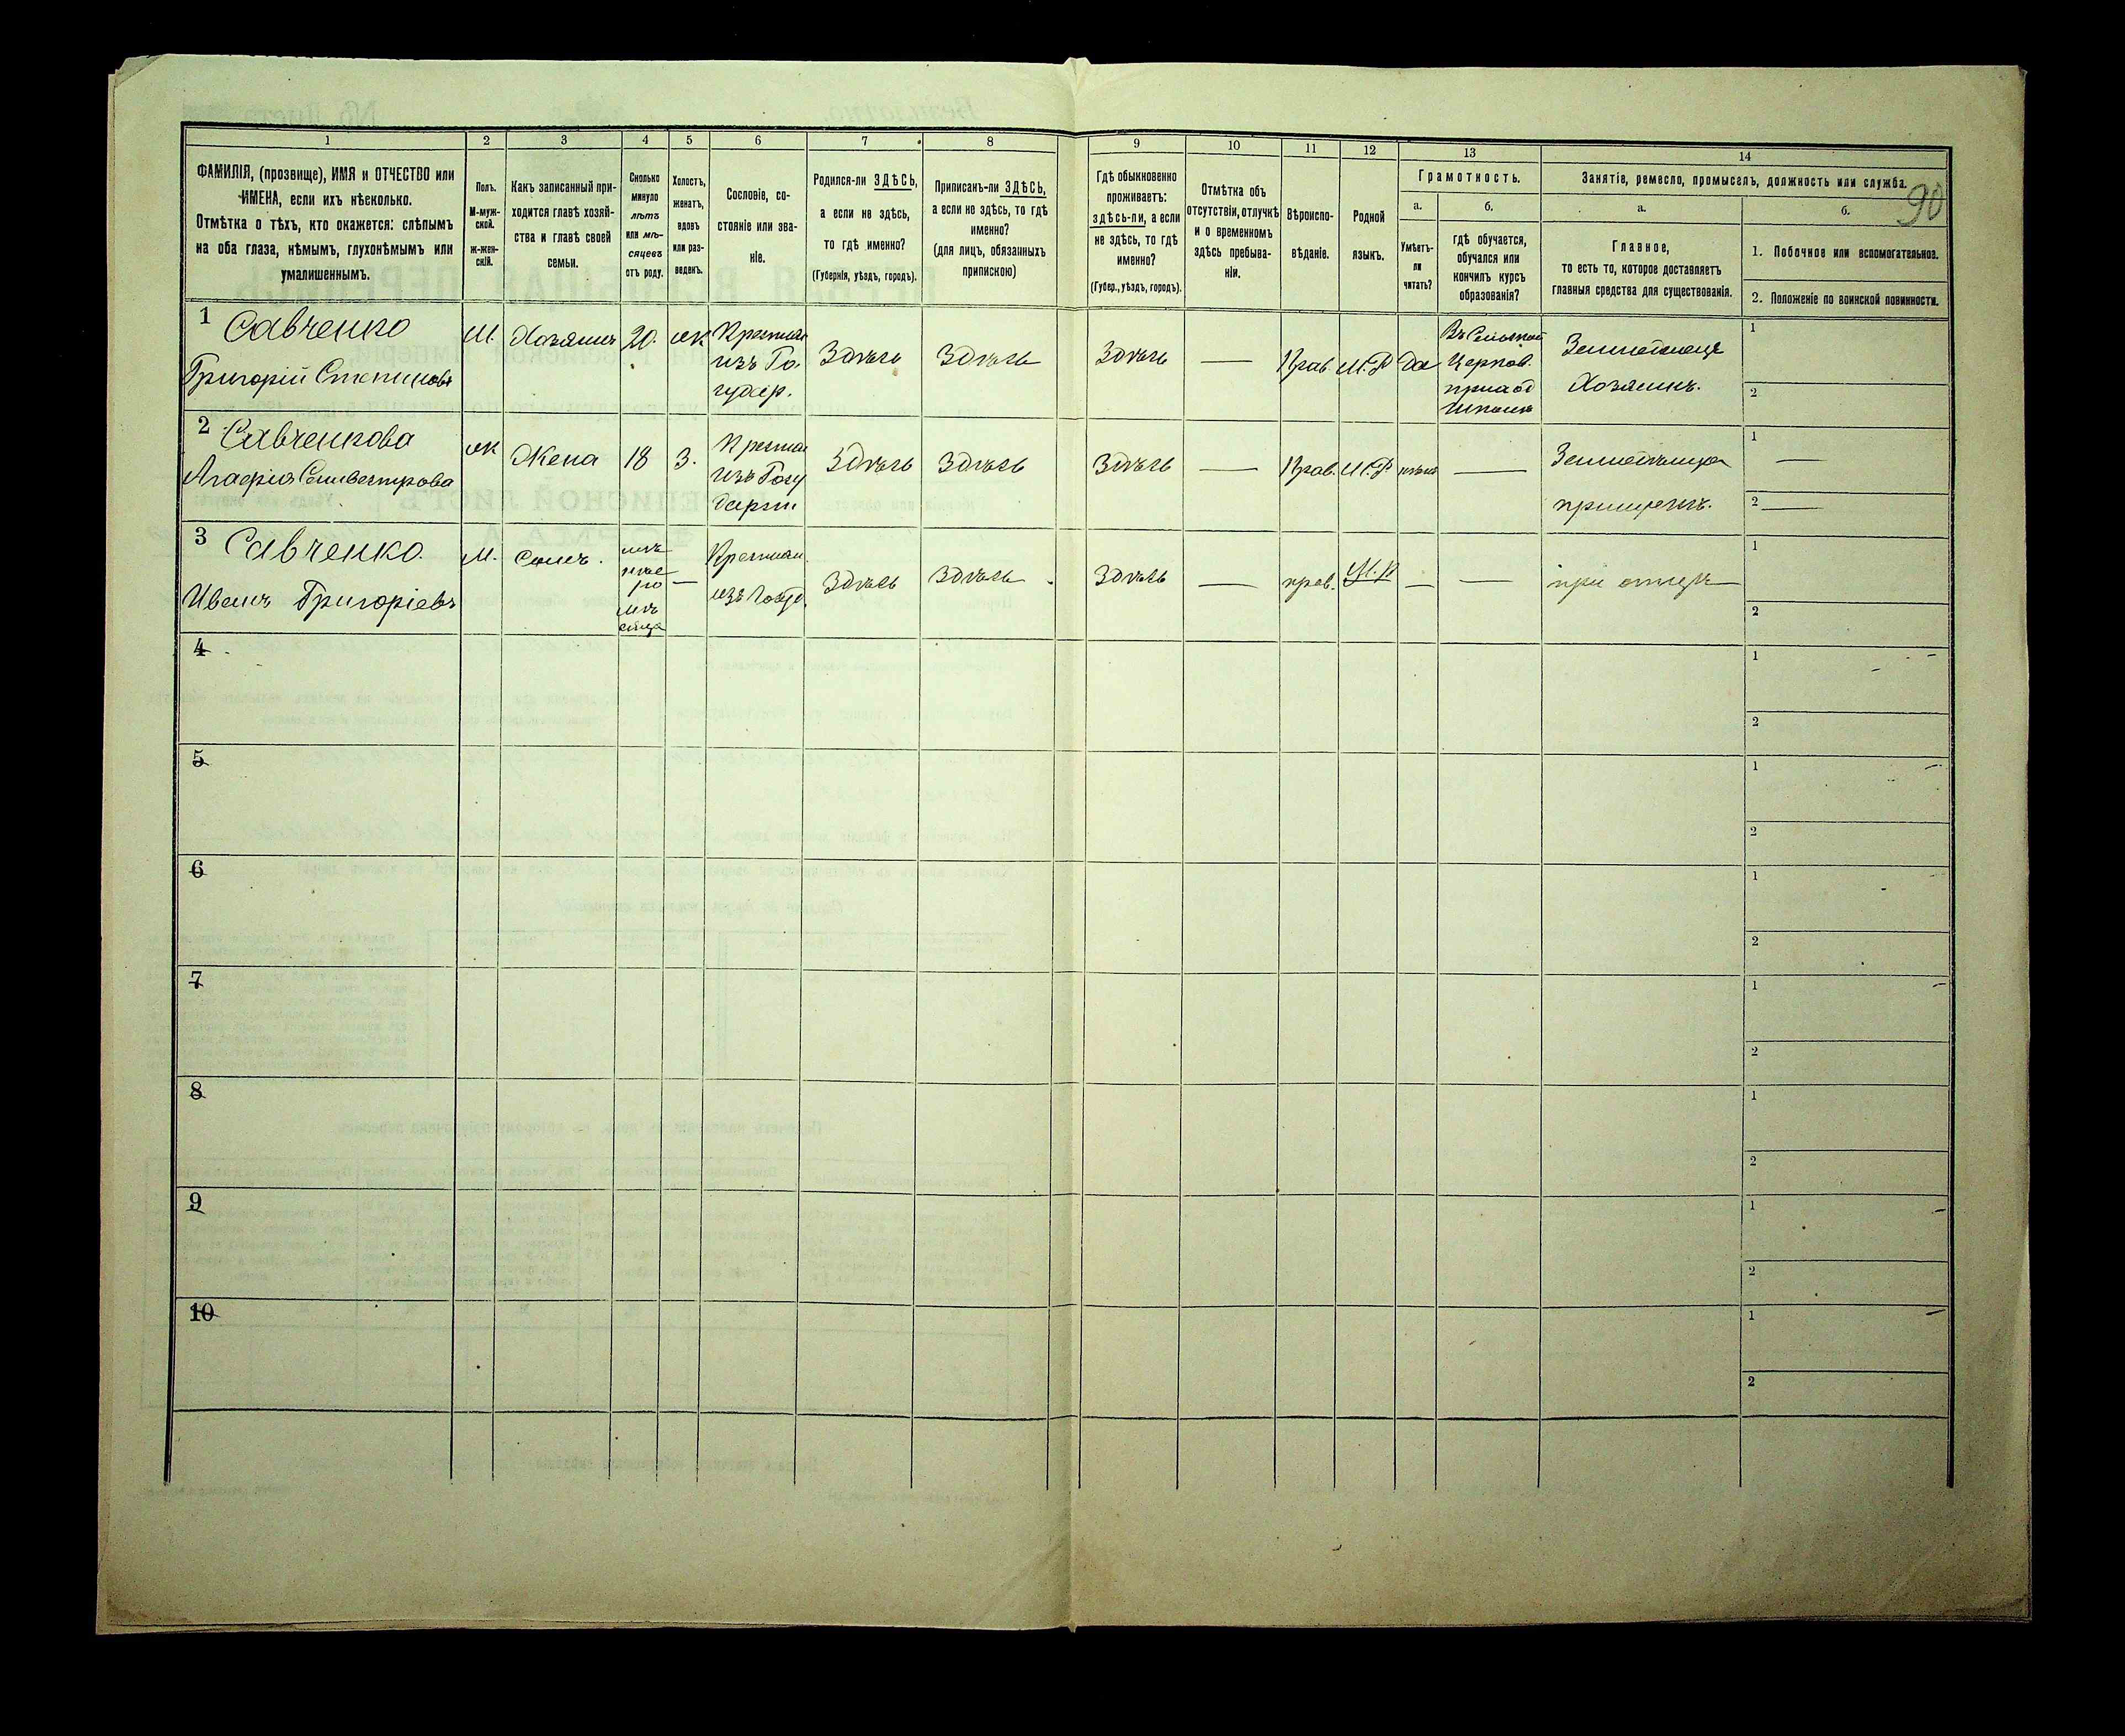 1 2 3 4 5 6 7 8 9 10 11 12 13 14
90
ФАМИЛІЯ, (прозвище), ИМЯ и ОТЧЕСТВО или
ИМЕНА, если ихъ нѣсколько.
Отмѣтка о тѣхъ, кто окажется: слѣпымъ
на оба глаза, нѣмымъ, глухонѣмымъ или
умалишеннымъ.
Полъ.
М-муж-
ской.
ж-жен-
скій.
Какъ записанный при-
ходится главѣ хозяй-
ства и главѣ своей
семьи.
Сколько
минуло
лѣтъ
или мѣ-
сяцевъ
отъ роду.
Холостъ,
женатъ,
вдовъ
или раз-
веденъ.
Сословіе, со-
стояніе или зва-
ніе.
Родился-ли ЗДѢСЬ,
а если не здѣсь,
то гдѣ именно?
(Губернія, уѣздъ, городъ).
Приписанъ-ли ЗДѢСЬ,
а если не здѣсь, то гдѣ
именно?
(для лицъ, обязанныхъ
припискою)
Гдѣ обыкновенно
проживаетъ:
здѣсь-ли, а если
не здѣсь, то гдѣ
именно?
(Губер., уѣздъ, городъ).
Отмѣтка объ
отсутствіи, отлучкѣ
и о временномъ
здѣсь пребыва-
ніи.
Вѣроиспо-
вѣданіе.
Родной
языкъ.
Грамотность.
а.
Умѣетъ-
ли
читать?
б.
гдѣ обучается,
обучался или
кончилъ курсъ
образованія?
Занятіе, ремесло, промыселъ, должность или служба.
а.
Главное,
то есть то, которое доставляетъ
главныя средства для существованія.
б.
1. Побочное или вспомогательное.
2. Положеніе по воинской повинности.
1 Савченко
Григорій Степановъ
М.
Хозяинъ
20.
Ж
Крестьян
изъ Го
Здѣсь
Здѣсь
Здѣсь
—
Прав.
М.Р
Да
Церков.
Хозяинъ.
1
2
2 Савченкова
Агафія Селивестрова
Ж
Жена
18
З.
изъ Госу
дарст
Здѣсь
Здѣсь
Здѣсь
—
Прав.
М.Р
—
1 —
2 —
3 Савченко.
Иванъ Григоріевъ
М.
Сынъ.
—
Крестьян.
Здѣсь
Здѣсь
Здѣсь
—
прав.
М.Р
—
—
при отцѣ
1
2
4
1
2
5
1
2
6
1
2
7
1
2
8
1
2
9
1
2
10
1
2